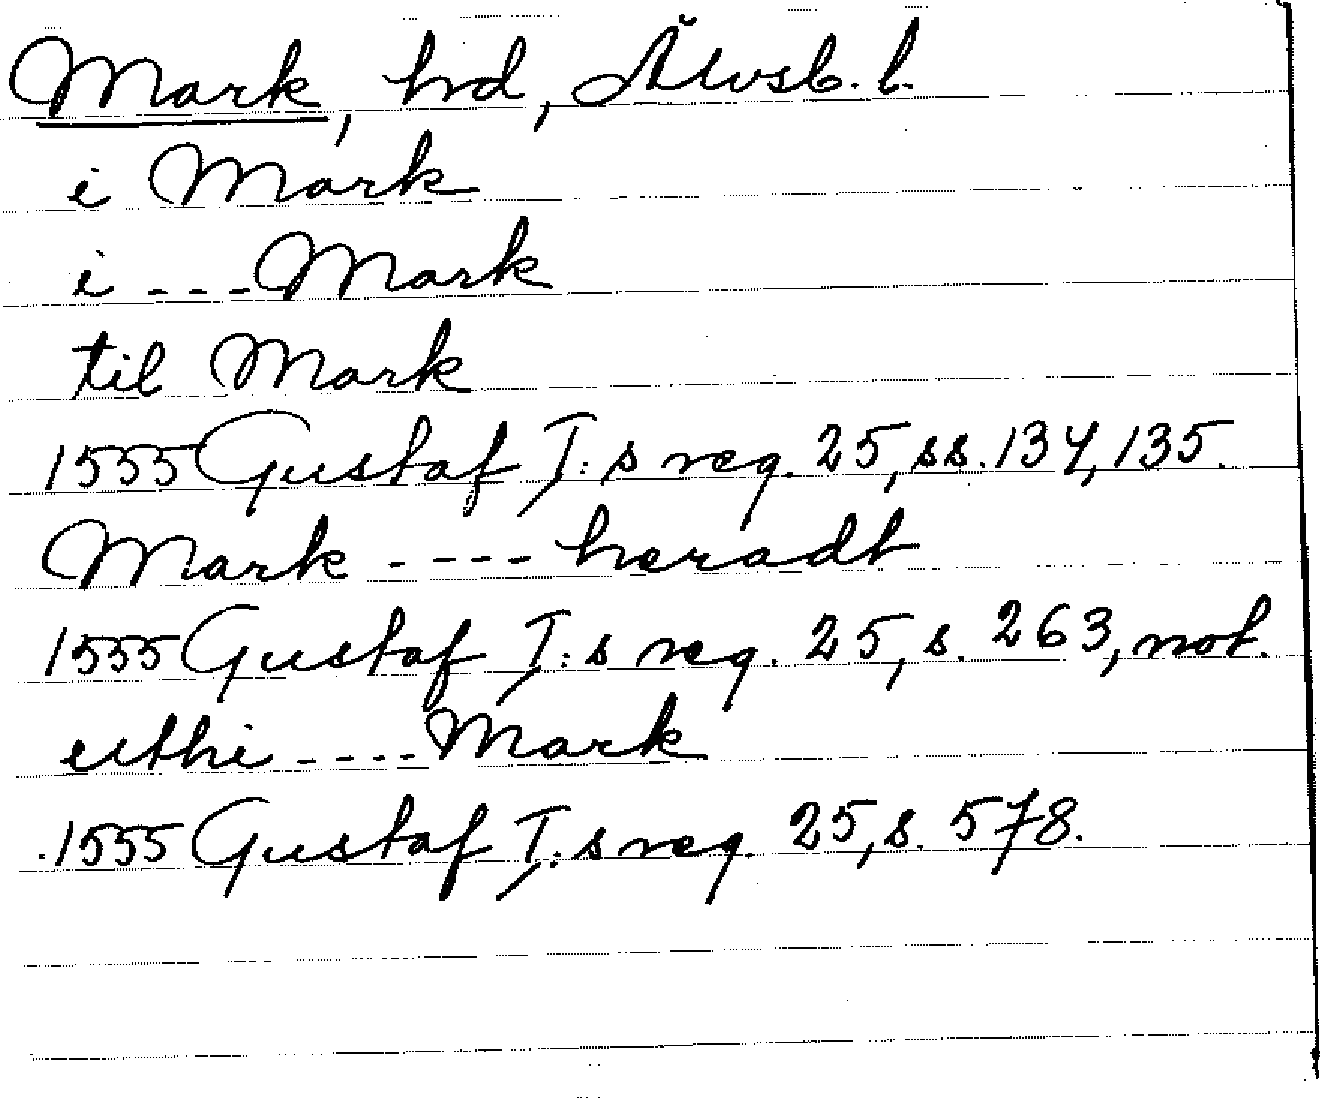 Mark, hd, Älvsb. l.
i Mark
i - - - Mark
til Mark
1555 Gustaf I:s reg. 25, ss. 134, 135.
Mark - - - - heradt
1555 Gustaf I:s reg. 25, s. 263, not.
uthi - - - - Mark
1555 Gustaf I:s reg. 25, s. 578.